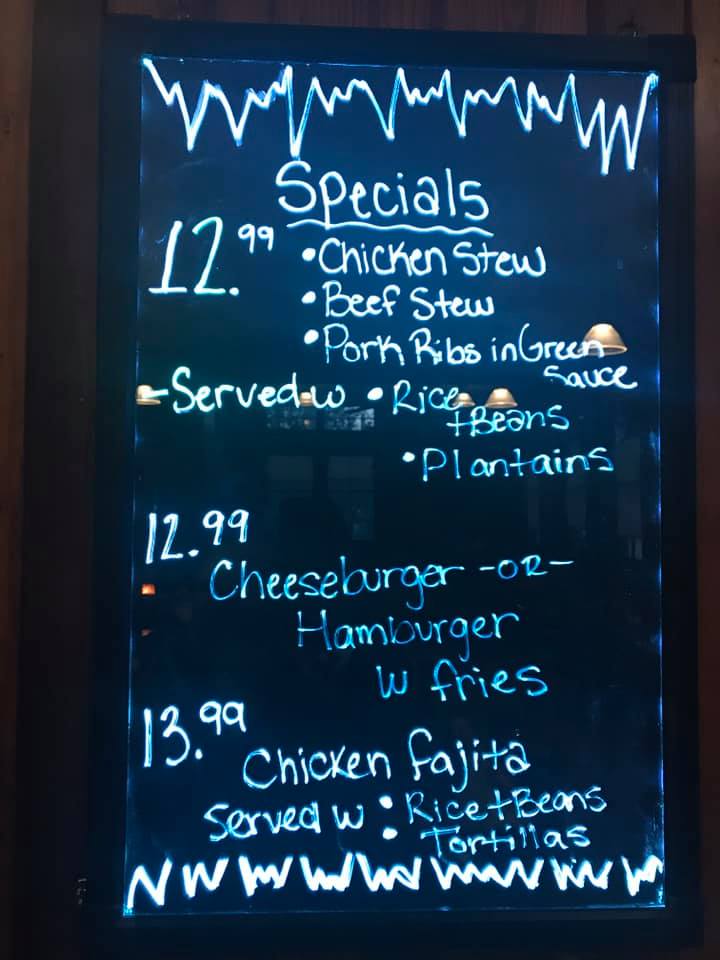 Specials
12.99
• Chicken Stew
• Beef Stew
• Pork Ribs in Green
Sauce
- Served w • Rice
+ Beans
• Plantains
12.99
Cheeseburger -OR-
Hamburger
w fries
13.99
Chicken fajita
Served w • Rice + Beans
• Tortillas